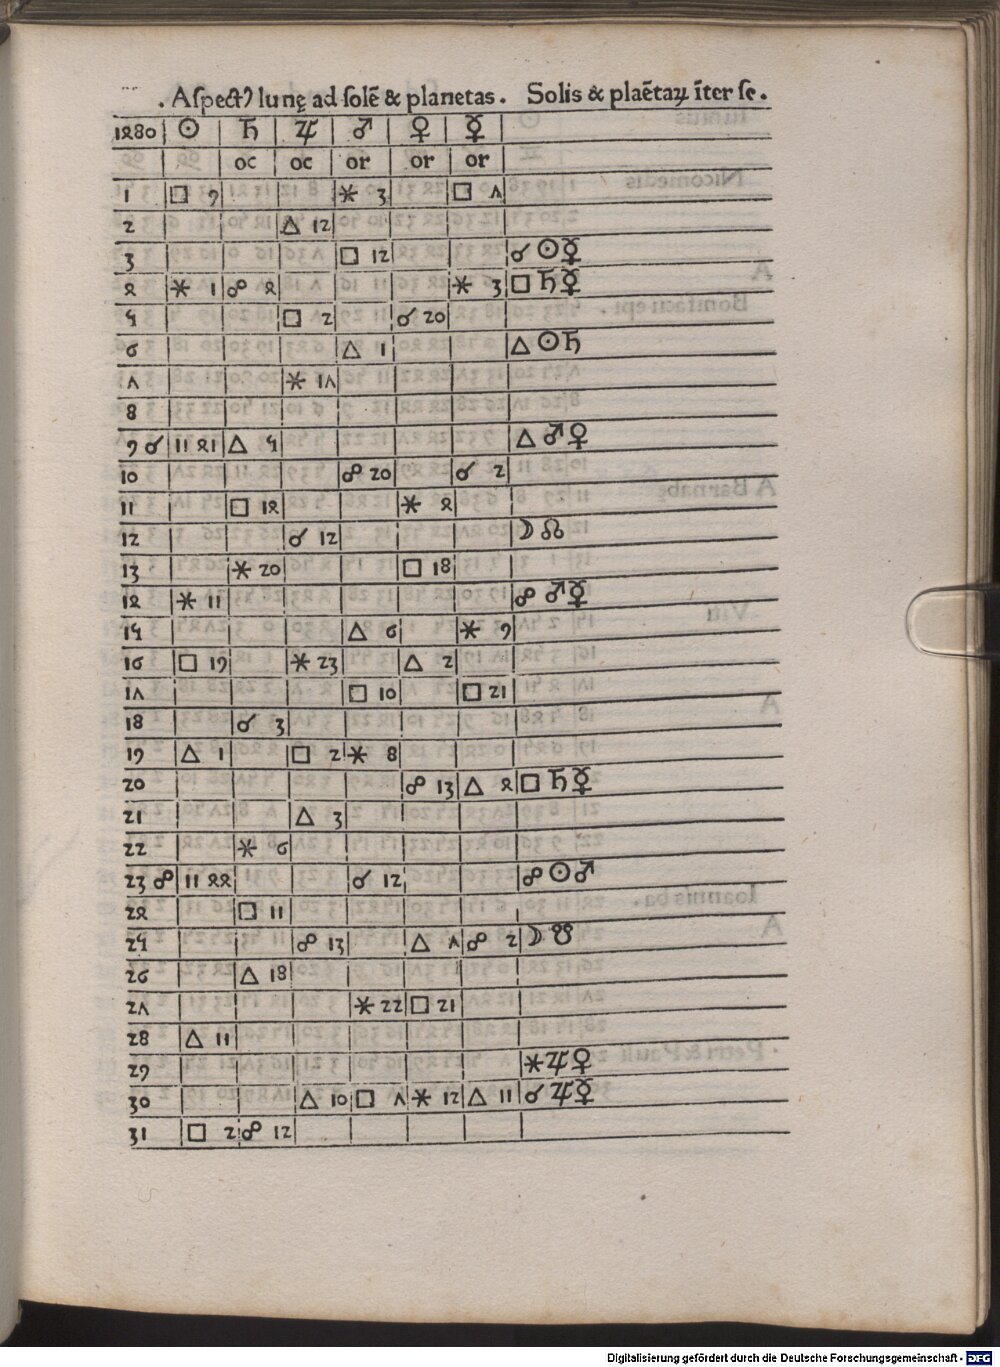 . Aspectꝰ lunę ad solē & planetas . Solis & plaētaꝝ īter se .
1480 ☉ ♄ ♃ ♂ ♀ ☿
oc oc or or or
1 □ 9 ⚹ 3 □ 7
2 △ 12
3 □ 12 ☌ ☉ ☿
4 ⚹ 1 ☍ 4 ⚹ 3 □ ♄ ☿
5 □ 2 ☌ 20
6 △ 1 △ ☉ ♄
7 ⚹ 17
8
9 ☌ 11 41 △ 5 △ ♂ ♀
10 ☍ 20 ☌ 2
11 □ 14 ⚹ 4
12 ☌ 12 ☽ ☊
13 ⚹ 20 □ 18
14 ⚹ 11 ☍ ♂ ☿
15 △ 6 ⚹ 9
16 □ 19 ⚹ 23 △ 2
17 □ 10 □ 21
18 ☌ 3
19 △ 1 □ 2 ⚹ 8
20 ☍ 13 △ 4 □ ♄ ☿
21 △ 3
22 ⚹ 6
23 ☍ 11 44 ☌ 12 ☍ ☉ ♂
24 □ 11
25 ☍ 13 △ 7 ☍ 2 ☽ ☋
26 △ 18
27 ⚹ 22 □ 21
28 △ 11
29 ⚹ ♃ ♀
30 △ 10 □ 7 ⚹ 12 △ 11 ☌ ♃ ☿
31 □ 2 ☍ 12
Digitalisierung gefördert durch die Deutsche Forschungsgemeinschaft - DFG